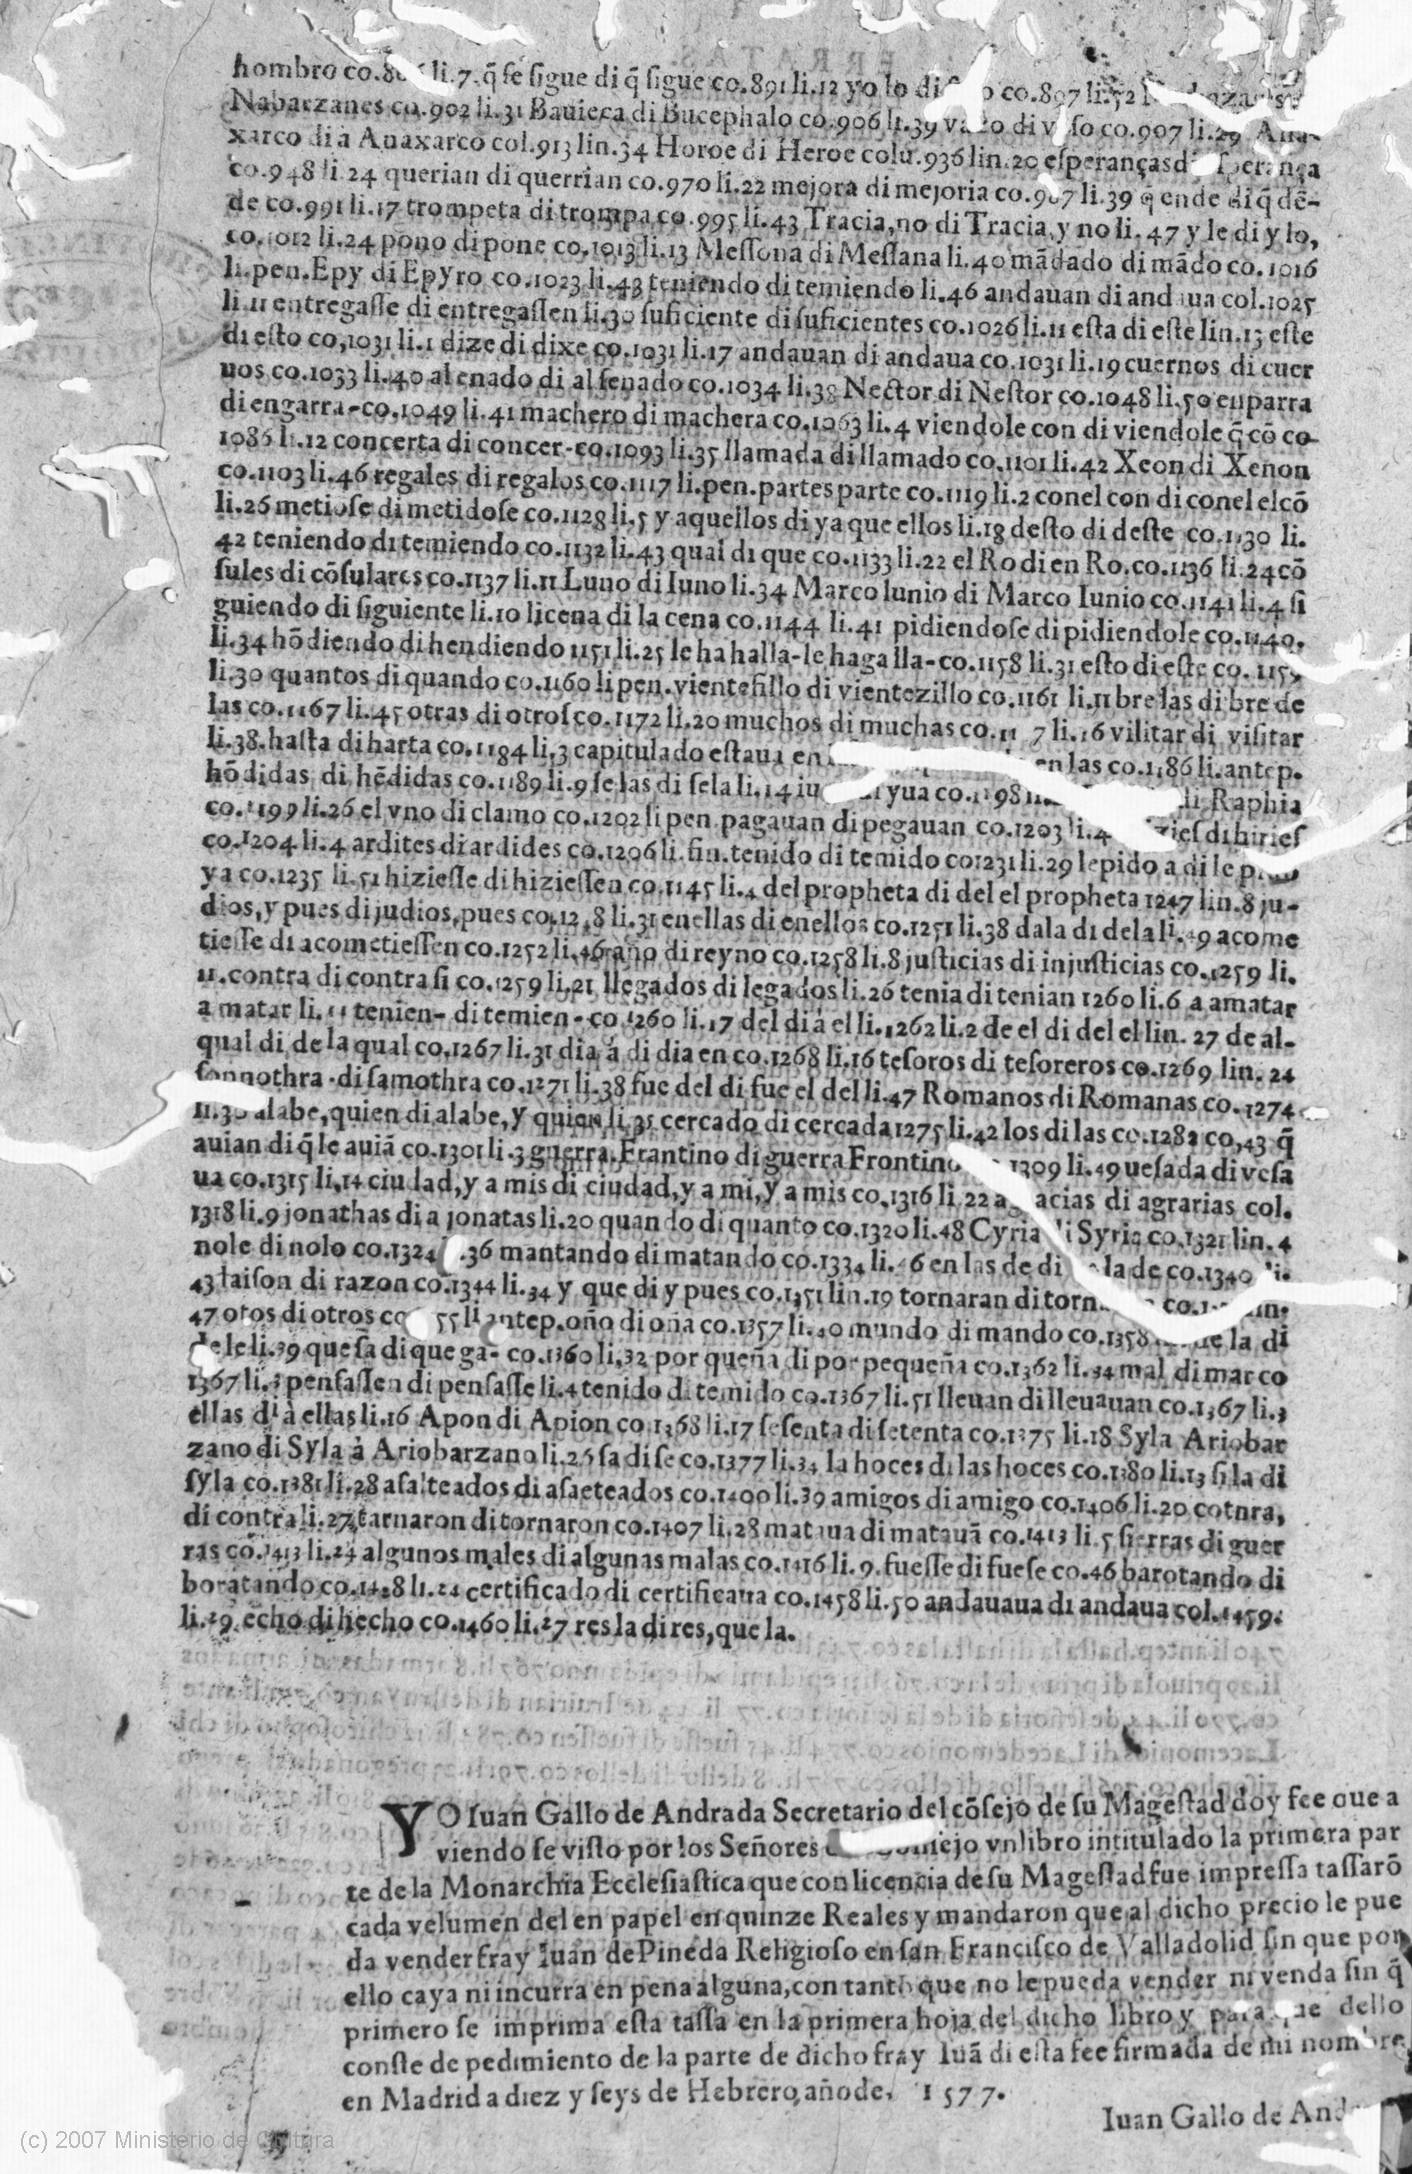 hombro co.806 li.7.q̃ se sigue di q̃ sigue co.891 li.12 yo lo di co.897 li.52
Nabarzanes co.902 li.31 Bauieca di Bucephalo co.906 li.39 di co.907 li.29 Ana-
xarco di à Anaxarco col.913 lin.34 Horoe di Heroe colu.936 lin.20 esperanças di esperança
co.948 li 24 querian di querrian co.970 li.22 mejora di mejoria co.987 li.39 q̃ ende di q̃ dẽ-
de co.991 li.17 trompeta di trompa co.995 li.43 Tracia,no di Tracia,y no li.47 y le di y lo,
co.1012 li.24 pono di pone co.1013 li.13 Messona di Messana li.40 mãdado di mãdo co.1016
li.pen.Epy di Epyro co.1023 li.43 teniendo di temiendo li.46 andauan di andaua col.1025
li.11 entregasse di entregassen li.30 suficiente di suficientes co.1026 li.11 esta di este lin.13 este
di esto co,1031 li.1 dize di dixe co.1031 li.17 andauan di andaua co.1031 li.19 cuernos di cuer
uos co.1033 li.40 al enado di al senado co.1034 li.38 Nector di Nestor co.1048 li.50 enparra
di engarra-co.1049 li.41 machero di machera co.1063 li.4 viendole con di viendole q̃ cõ co-
1086 li.12 concerta di concer-co.1093 li.35 llamada di llamado co.1101 li.42 Xeon di Xenon
co.1103 li.46 regales di regalos co.1117 li.pen.partes parte co.1119 li.2 conel con di conel elcõ
li.26 metiose di metidose co.1128 li.5 y aquellos di ya que ellos li.18 desto di deste co.1130 li.
42 teniendo di temiendo co.1132 li.43 qual di que co.1133 li.22 el Ro di en Ro.co.1136 li.24 cõ
sules di cõsulares co.1137 li.11 Luno di Iuno li.34 Marco lunio di Marco Iunio co.1141 li.4 si
guiendo di siguiente li.10 licena di la cena co.1144 li.41 pidiendose di pidiendole co.1149.
li.34 hõdiendo di hendiendo 1151 li.25 le ha halla-le haga lla-co.1158 li.31 esto di este co.1159
li.30 quantos di quando co.1160 li pen.vientesillo di vientezillo co.1161 li.11 bre las di bre de
las co.1167 li.45 otras di otros co.1172 li.20 muchos di muchas co.11 7 li.16 vilitar di visitar
li.38.hasta di harta co.1184 li.3 capitulado estaua en en las co.1186 li.antep.
hõdidas di hẽdidas co.1189 li.9 se las di sela li.14 yua co.1198 di Raphia
co.1199 li.26 el vno di clamo co.1202 li pen.pagauan di pegauan co.1203 li.4 di hiries
co.1204 li.4 ardites di ardides co.1206 li.fin.tenido di temido co1231 li.29 lepido a di le
ya co.1235 li.51 hiziesse di hiziessen co.1145 li.4 del propheta di del el propheta 1247 lin.8 ju-
dios,y pues di judios,pues co.12,8 li.31 enellas di enellos co.1251 li.38 dala di dela li.49 acome
tiesse di acometiessen co.1252 li.46 año di reyno co.1258 li.8 justicias di injusticias co.1259 li.
11.contra di contra si co.1259 li.21 llegados di legados li.26 tenia di tenian 1260 li.6 a amatar
a matar li.11 tenien- di temien-co.1260 li.17 del di à el li.1262 li.2 de el di del el lin.27 de al-
qual di de la qual co.1267 li.31 dia á di dia en co.1268 li.16 tesoros di tesoreros co.1269 lin.24
sonnothra di samothra co.1271 li.38 fue del di fue el del li.47 Romanos di Romanas co.1274
li.30 alabe,quien di alabe,y quien li.35 cercado di cercada 1275 li.42 los di las co.1282 co,43 q̃
auian di q̃ le auiã co.1301 li.3 guerra.Frantino di guerra Frontino 1309 li.49 uesada di vesa
ua co.1315 li,14 ciudad,y a mis di ciudad,y a mi,y a mis co.1316 li.22 di agrarias col.
1318 li.9 jonathas di a jonatas li.20 quando di quanto co.1320 li.48 Cyria di Syria co.1321 lin.4
nole di nolo co.1324 .36 mantando di matando co.1334 li.46 en las de di la de co.1340 li.
43 laison di razon co.1344 li.34 y que di y pues co.1351 lin.19 tornaran di co. lin.
47 otos di otros co 55 li antep.oño di oña co.1357 li.40 mundo di mando co.1358 la di
de le li.39 quesa di que ga- co.1360 li.32 por queña di por pequeña co.1362 li.34 mal di marco
1367 li.3 pensassen di pensasse li.4 tenido di temido co.1367 li.51 lleuan di lleuauan co.1367 li.3
ellas di à ellas li.16 Apon di Apion co.1368 li.17 sesenta di setenta co.1375 li.18 Syla Ariobar
zano di Syla à Ariobarzano li.26 sa di se co.1377 li.34 la hoces di las hoces co.1380 li.13 sila di
syla co.1381 li.28 asalteados di asaeteados co.1400 li.39 amigos di amigo co.1406 li.20 cotnra,
di contra li.27,tarnaron di tornaron co.1407 li.28 mataua di matauã co.1413 li.5 sierras di guer
ras co.1413 li.24 algunos males di algunas malas co.1416 li.9.fuesse di fuese co.46 barotando di
boratando co.1428 li.24 certificado di certificaua co.1458 li.50 andauaua di andaua col.1459.
li.29. echo di hecho co.1460 li.27 resla di res,que la.
YO Iuan Gallo de Andrada Secretario del cõsejo de su Magestad doy fee que a
viendo se visto por los Señores vn libro intitulado la primera par
te de la Monarchia Ecclesiastica que con licencia de su Magestad fue impressa tassarõ
cada velumen del en papel en quinze Reales y mandaron que al dicho precio le pue
da vender fray Iuan de Pineda Religioso en san Francisco de Valladolid sin que por
ello caya ni incurra en pena alguna,con tanto que no le pueda vender ni venda sin q̃
primero se imprima esta tassa en la primera hoja del dicho libro y para que dello
conste de pedimiento de la parte de dicho fray Iuã di esta fee firmada de mi nombre
en Madrid a diez y seys de Hebrero,año de. 1577.
Iuan Gallo de
(c) 2007 Ministerio de Cultura